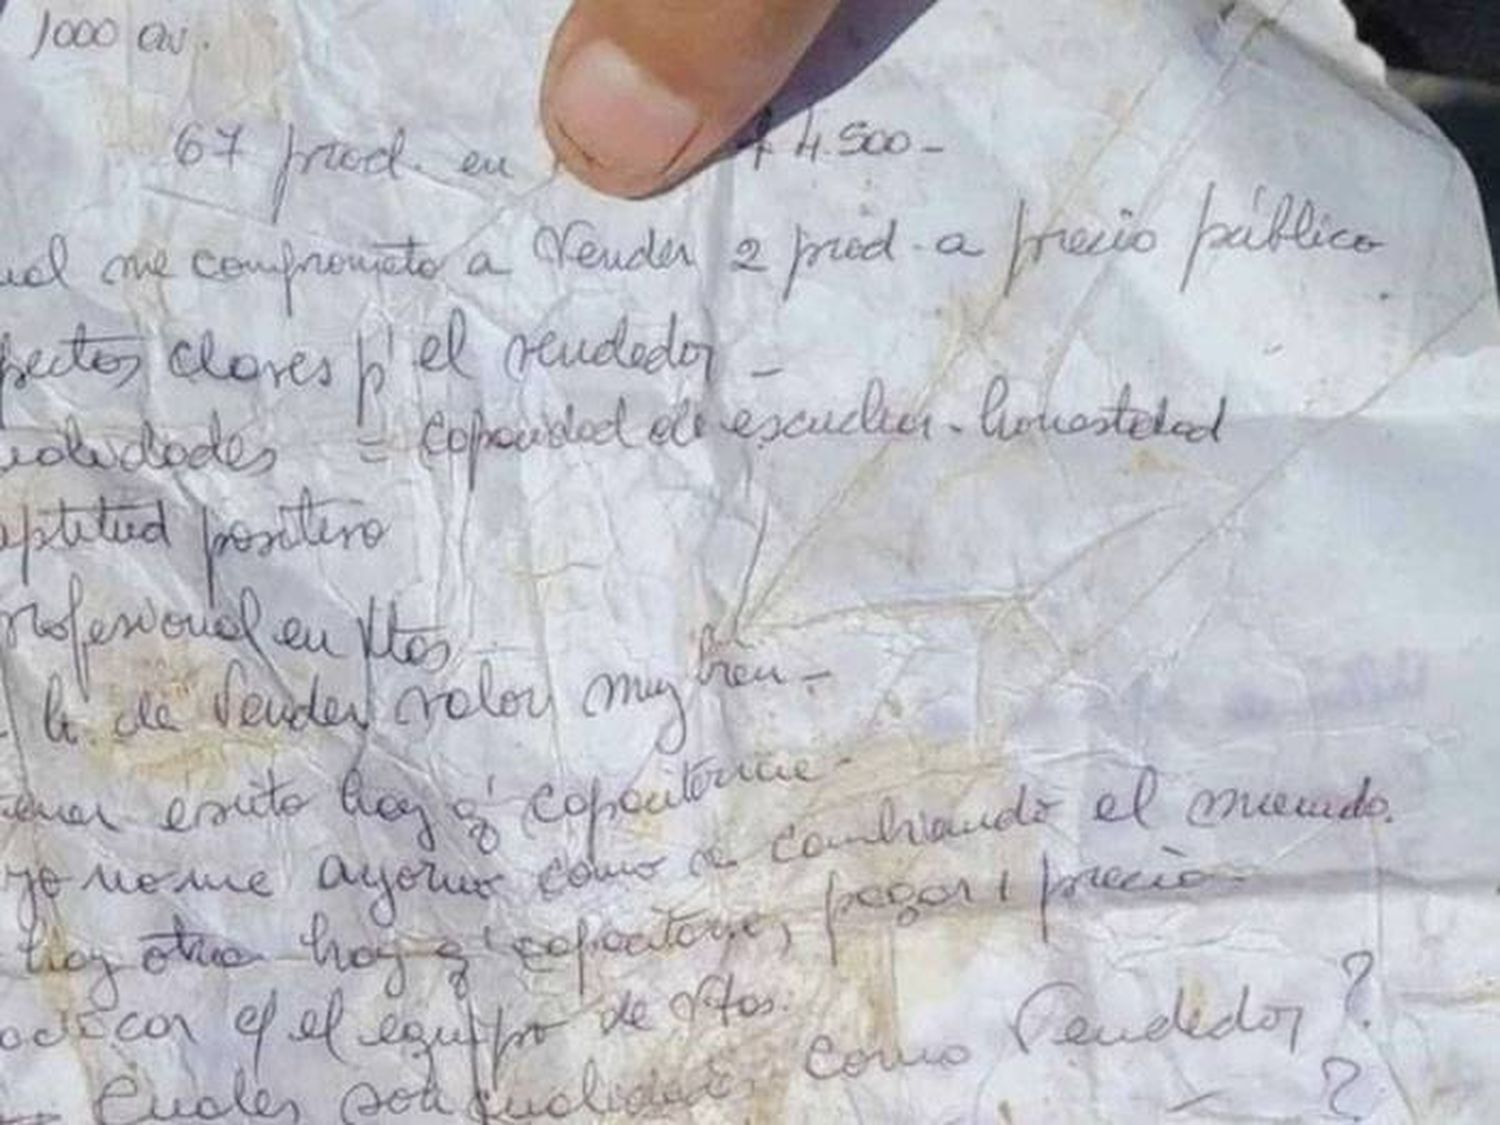 1000 av.
67 prod. en $ 4.500-
ual me comprometo a Vender 2 prod. a precio público
pectos claves p' el vendedor -
ualidades = capacidad de escuchar - honestidad
aptitud positiva
profesional en Vtas
de Vender valor muy bien -
ener exito hay q' capacitarme -
yo no me ayorno como va cambiando el mundo.
hay otra hay q' capacitarse, pagar 1 precio -
car c/ el equipo de Vtas.
Cuales son cualidades como Vendedor ?
?